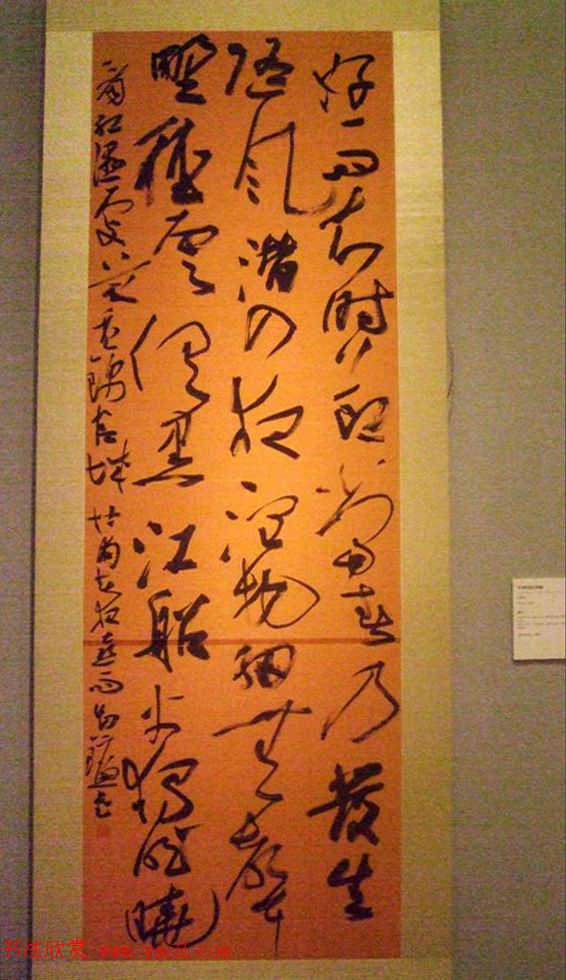 好雨知時節當春乃發生
隨風潛入夜潤物細無聲
野徑雲俱黑江船火獨明曉
看紅濕處花重錦官城 杜甫春夜喜雨
书法欣赏 www.yac8.com